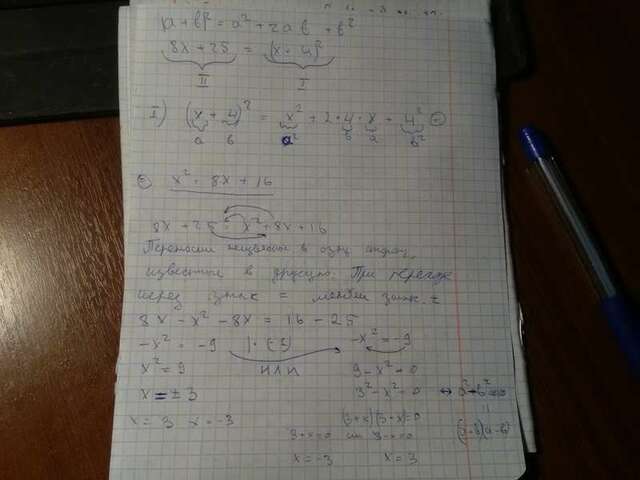 (a + b)² = a² + 2ab + b²
8x + 25 = (x + 4)²
II I
I) (x + 4)² = x² + 2·4·x + 4² =
a b a² b a b²
= x² + 8x + 16
8x + 25 = x² + 8x + 16
Переносим неизвестные в одну сторону,
известные в другую. При переходе
через знак = меняем знак ±
8x - x² - 8x = 16 - 25
-x² = -9 -x² = -9
x² = 9 или 9 - x² = 0
x = ± 3 3² - x² = 0
x = 3 x = -3 (3+x)(3-x)=0
3+x=0 или 3-x=0
x = -3 x = 3